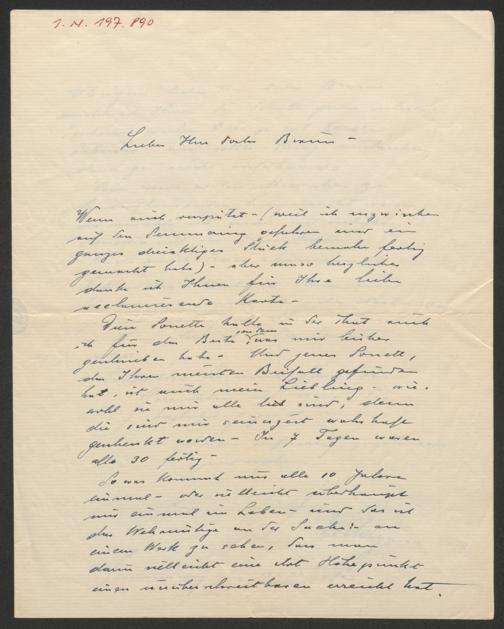 I.N. 197.890
Lieber Herr Doctor Braun -
Wenn auch verspätet - (weil ich inzwischen
auf den Semmering gefahren und ein
ganzes dreiaktiges Stück beinahe fertig
gemacht habe) - aber umso herzlicher
danke ich Ihnen für Ihre liebe
Karte -
Diese Sonette halte in der That auch
ich für das Beste von dem was mir bisher
geschrieben habe - Und jenes Sonett,
das Ihren meisten Beifall gefunden
hat, ist auch mein Liebling - wie-
wohl sie mir alle lieb sind, denn
die sind mir seinerzeit wahrhaft
geschenkt worden - In 7 Tagen waren
alle 30 fertig -
So was kommt nur alle 10 Jahre
einmal - oder vielleicht überhaupt
nur einmal im Leben - und das ist
das Wehmütige an der Sache: - an
einem Werk zu sehen, dass man
darin vielleicht eine Art Höhepunkt
einen unüberschreitbaren erreicht hat.